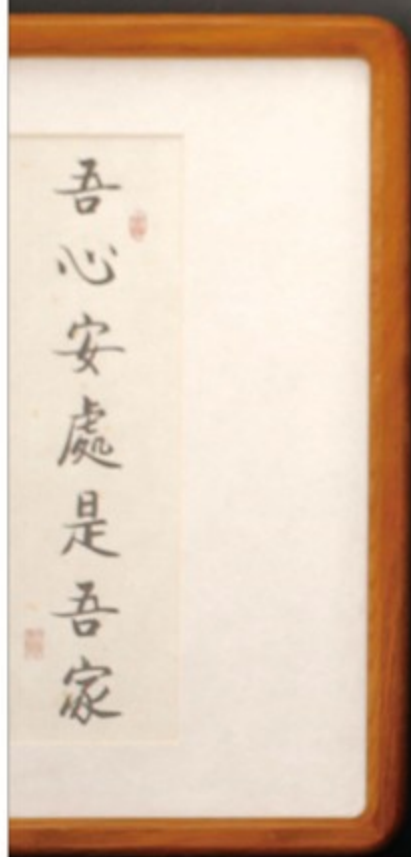 吾心安處是吾家